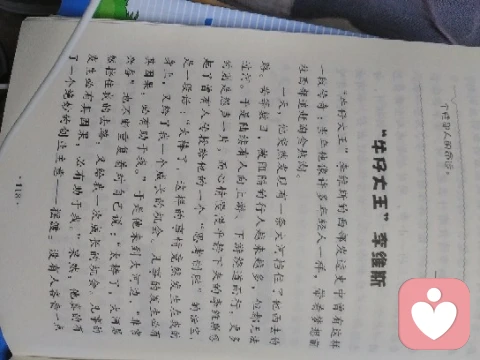 “牛仔大王”李维斯
“牛仔大王”李维斯的西部发迹史中曾有这样
一段传奇：当年他像许多年轻人一样，带着梦想前
往西部追赶淘金热潮。
一天，他突然发现有一条大河挡住了他西去的
路。苦等数日，被阻隔的行人越来越多，但都无法
过河。于是陆续有人向上游、下游绕道而行，更多
的则是怨声一片。而心情慢慢平静下来的李维斯想
起了曾有人传授给他的一个“思考制胜”的法宝，
是一段话：“太棒了，这样的事情竟然发生在我的
身上，又给了我一个成长的机会。凡事的发生必有
其因果，必有助于我。”于是他来到大河边，“非常
兴奋”地不断重复着对自己说：“太棒了，大河居
然挡住我的去路，又给我一次成长的机会，凡事的
发生必有其因果，必有助于我。”果然，他真的有
了一个绝妙的创业主意——摆渡。没有人吝啬一点
·118·